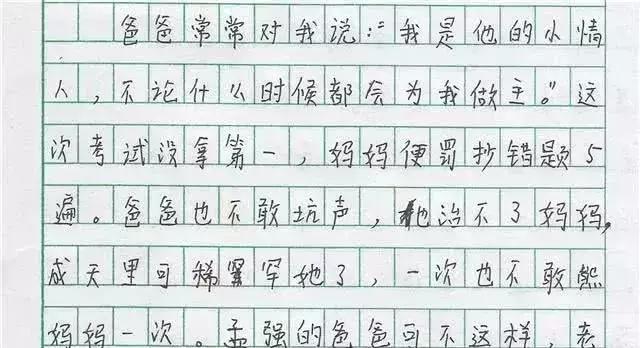 爸爸常常对我说:“我是他的小情
人，不论什么时候都会为我做主。”这
次考试没拿第一，妈妈便罚抄错题5
遍。爸爸也不敢坑声，他治不了妈妈，
成天里可稀罕她了，一次也不敢熊
妈妈一次。孟强的爸爸可不这样，老